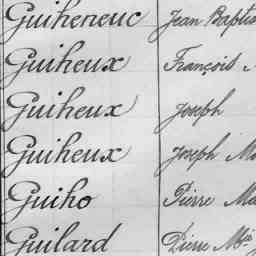 Guiheneuc Jean Baptis
Guiheux François
Guiheux Joseph
Guiheux Joseph Ma
Guiho Pierre Ma
Guilard Pierre Mie